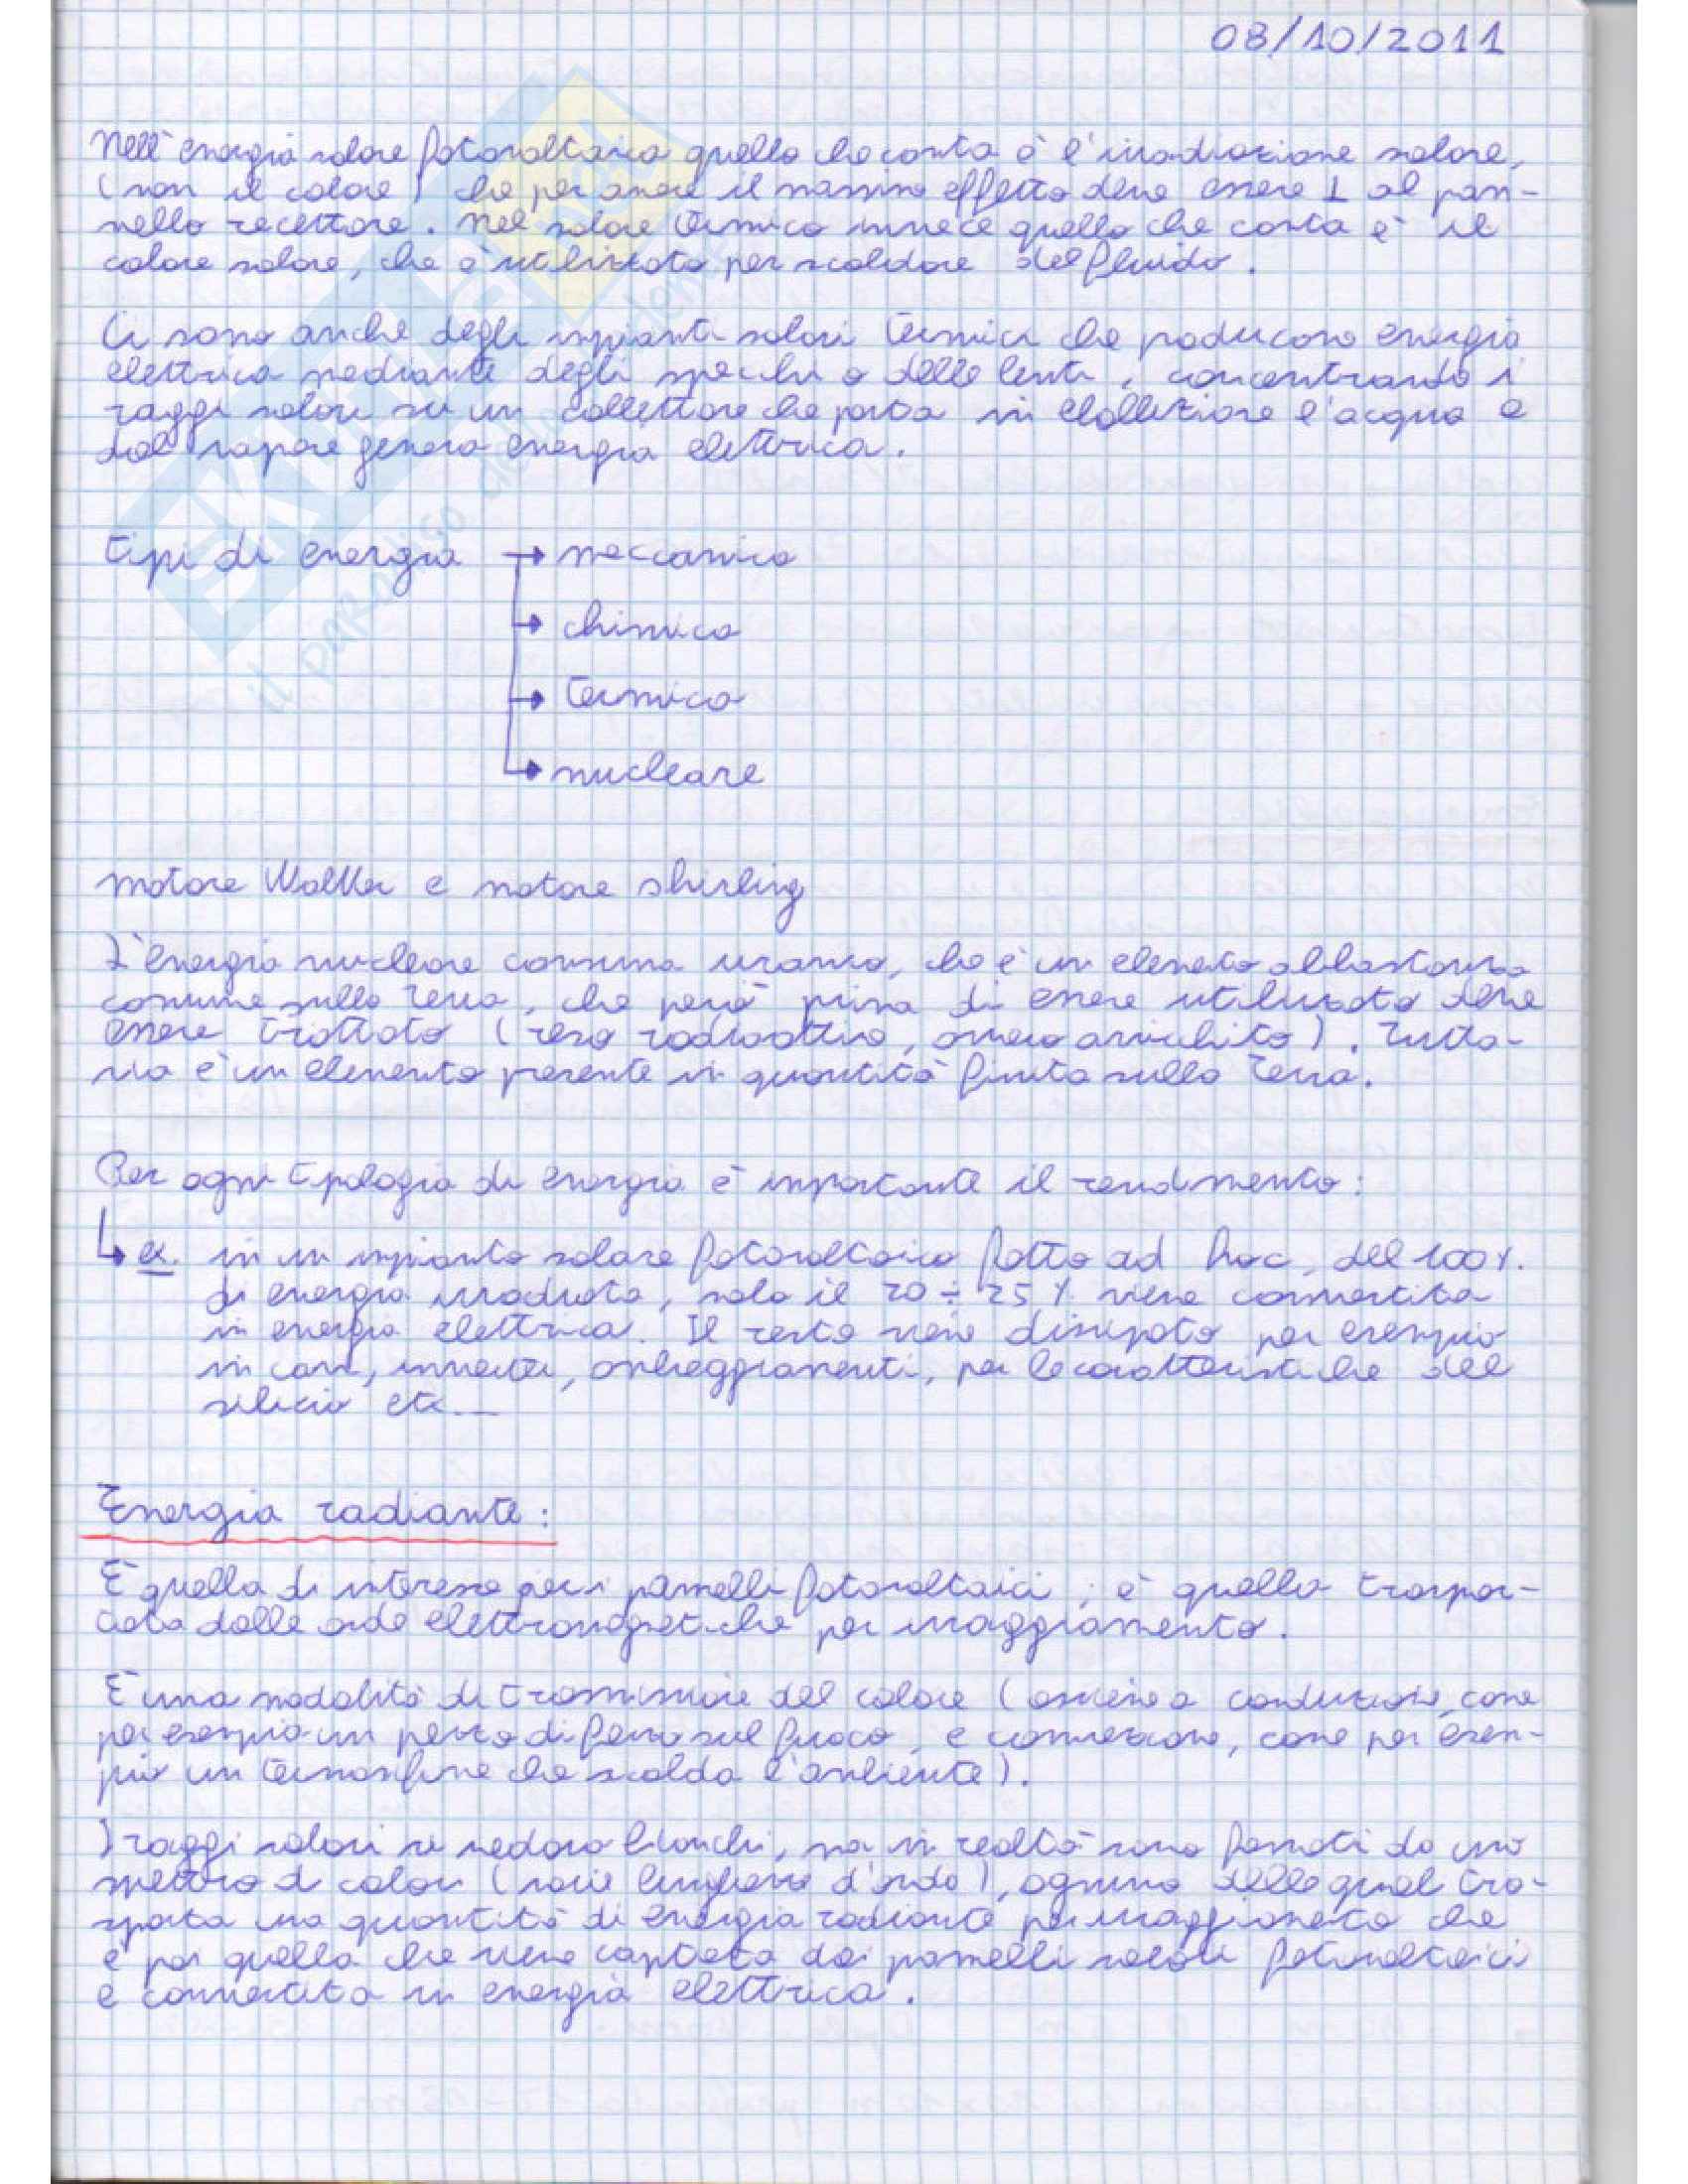 08/10/2011
Nell'energia solare fotovoltaica quello che conta è l'irradiazione solare,
(non il calore) che per avere il massimo effetto deve essere ⊥ al pan-
nello recettore. Nel solare termico invece quello che conta è il
calore solare, che è utilizzato per scaldare del fluido.
Ci sono anche degli impianti solari termici che producono energia
elettrica mediante degli specchi o delle lenti, concentrando i
raggi solari su un collettore che porta in ebollizione l'acqua e
dal vapore genera energia elettrica.
tipi di energia → meccanica
→ chimica
→ termica
→ nucleare
motore Walker e motore shirling
L'energia nucleare consuma uranio, che è un elemento abbastanza
comune sulla Terra, che però prima di essere utilizzato deve
essere trattato (reso radioattivo, ovvero arricchito). Tutta-
via è un elemento presente in quantità finita sulla Terra.
Per ogni tipologia di energia è importante il rendimento:
↳ ex. in un impianto solare fotovoltaico fatto ad hoc, del 100%
di energia irradiata, solo il 20 ÷ 25 % viene convertita
in energia elettrica. Il resto viene dissipato per esempio
in cavi, inverter, ombreggiamenti, per le caratteristiche del
silicio etc...
Energia radiante:
È quella di interesse per i pannelli fotovoltaici; è quella traspor-
tata dalle onde elettromagnetiche per irraggiamento.
È una modalità di trasmissione del calore (assieme a conduzione, come
per esempio un pezzo di ferro sul fuoco, e convezione, come per esem-
pio un termosifone che scalda l'ambiente).
I raggi solari si vedono bianchi, ma in realtà sono formati da uno
spettro di colori (varie lunghezze d'onda), ognuno delle quali tra-
sporta una quantità di energia radiante per irraggiamento che
è poi quella che viene captata dai pannelli solari fotovoltaici
e convertita in energia elettrica.
SKUOLA
il paradiso dello